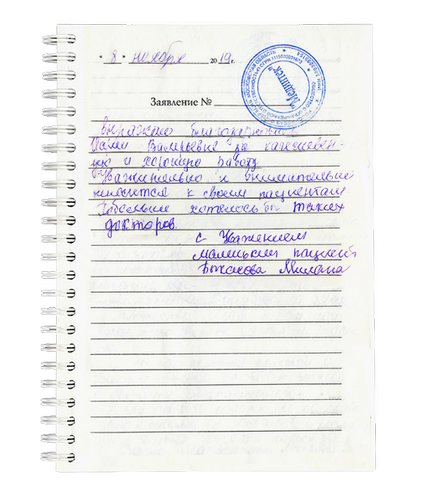 "8" ноября 2019 г.
Заявление №
выражаю благодарность
Валерьевне за качествен-
ную и хорошую работу
Уважительно и внимательно
относится к своим пациентам
Побольше хотелось бы таких
докторов.
с Уважением
маленький пациент
Милана
"Медитек"